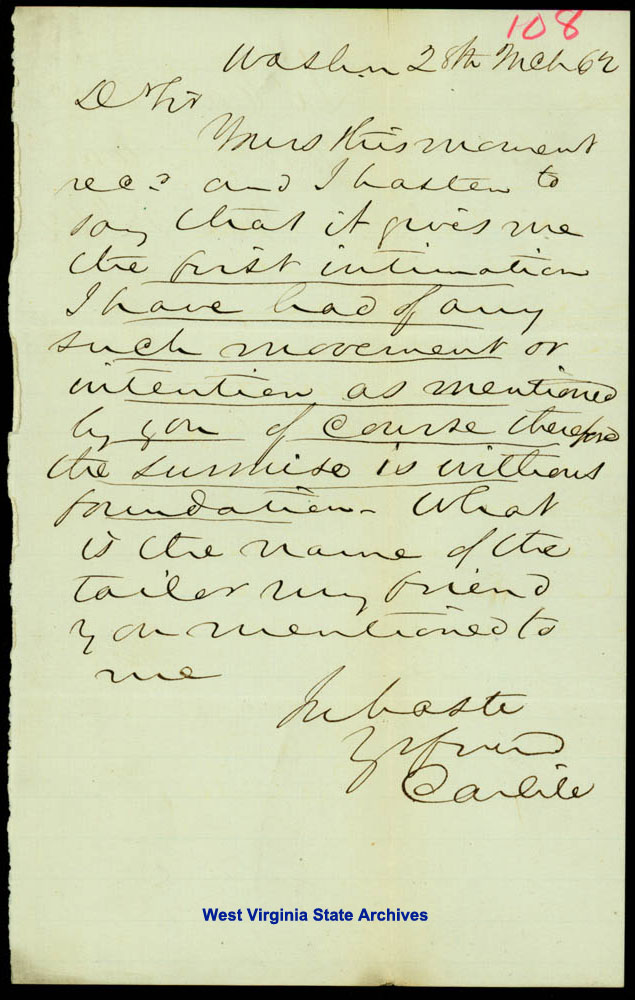 108
Washn 28th Mch 62
Dr Sir
Yours this moment
recd and I hasten to
say that it gives me
the first intimation
I have had of any
such movement or
intention as mentioned
by you of course therefore
the surmise is without
foundation - What
is the name of the
tailor my friend
you mentioned to
me
In haste
Yr friend
Carlile
West Virginia State Archives